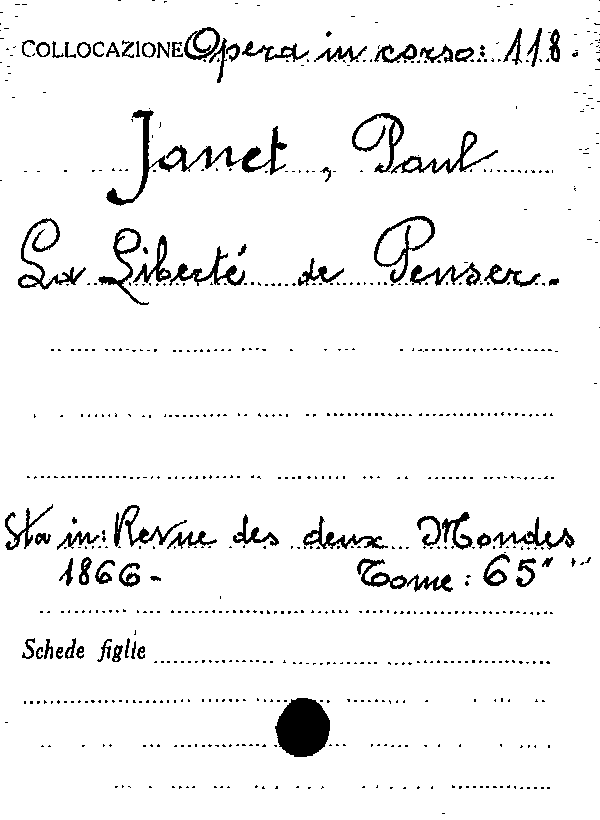 COLLOCAZIONE Opera in corso: 118.
Janet, Paul
La Liberté de Penser.
Sta in: Revue des deux Mondes
1866 - Tome: 65"
Schede figlie